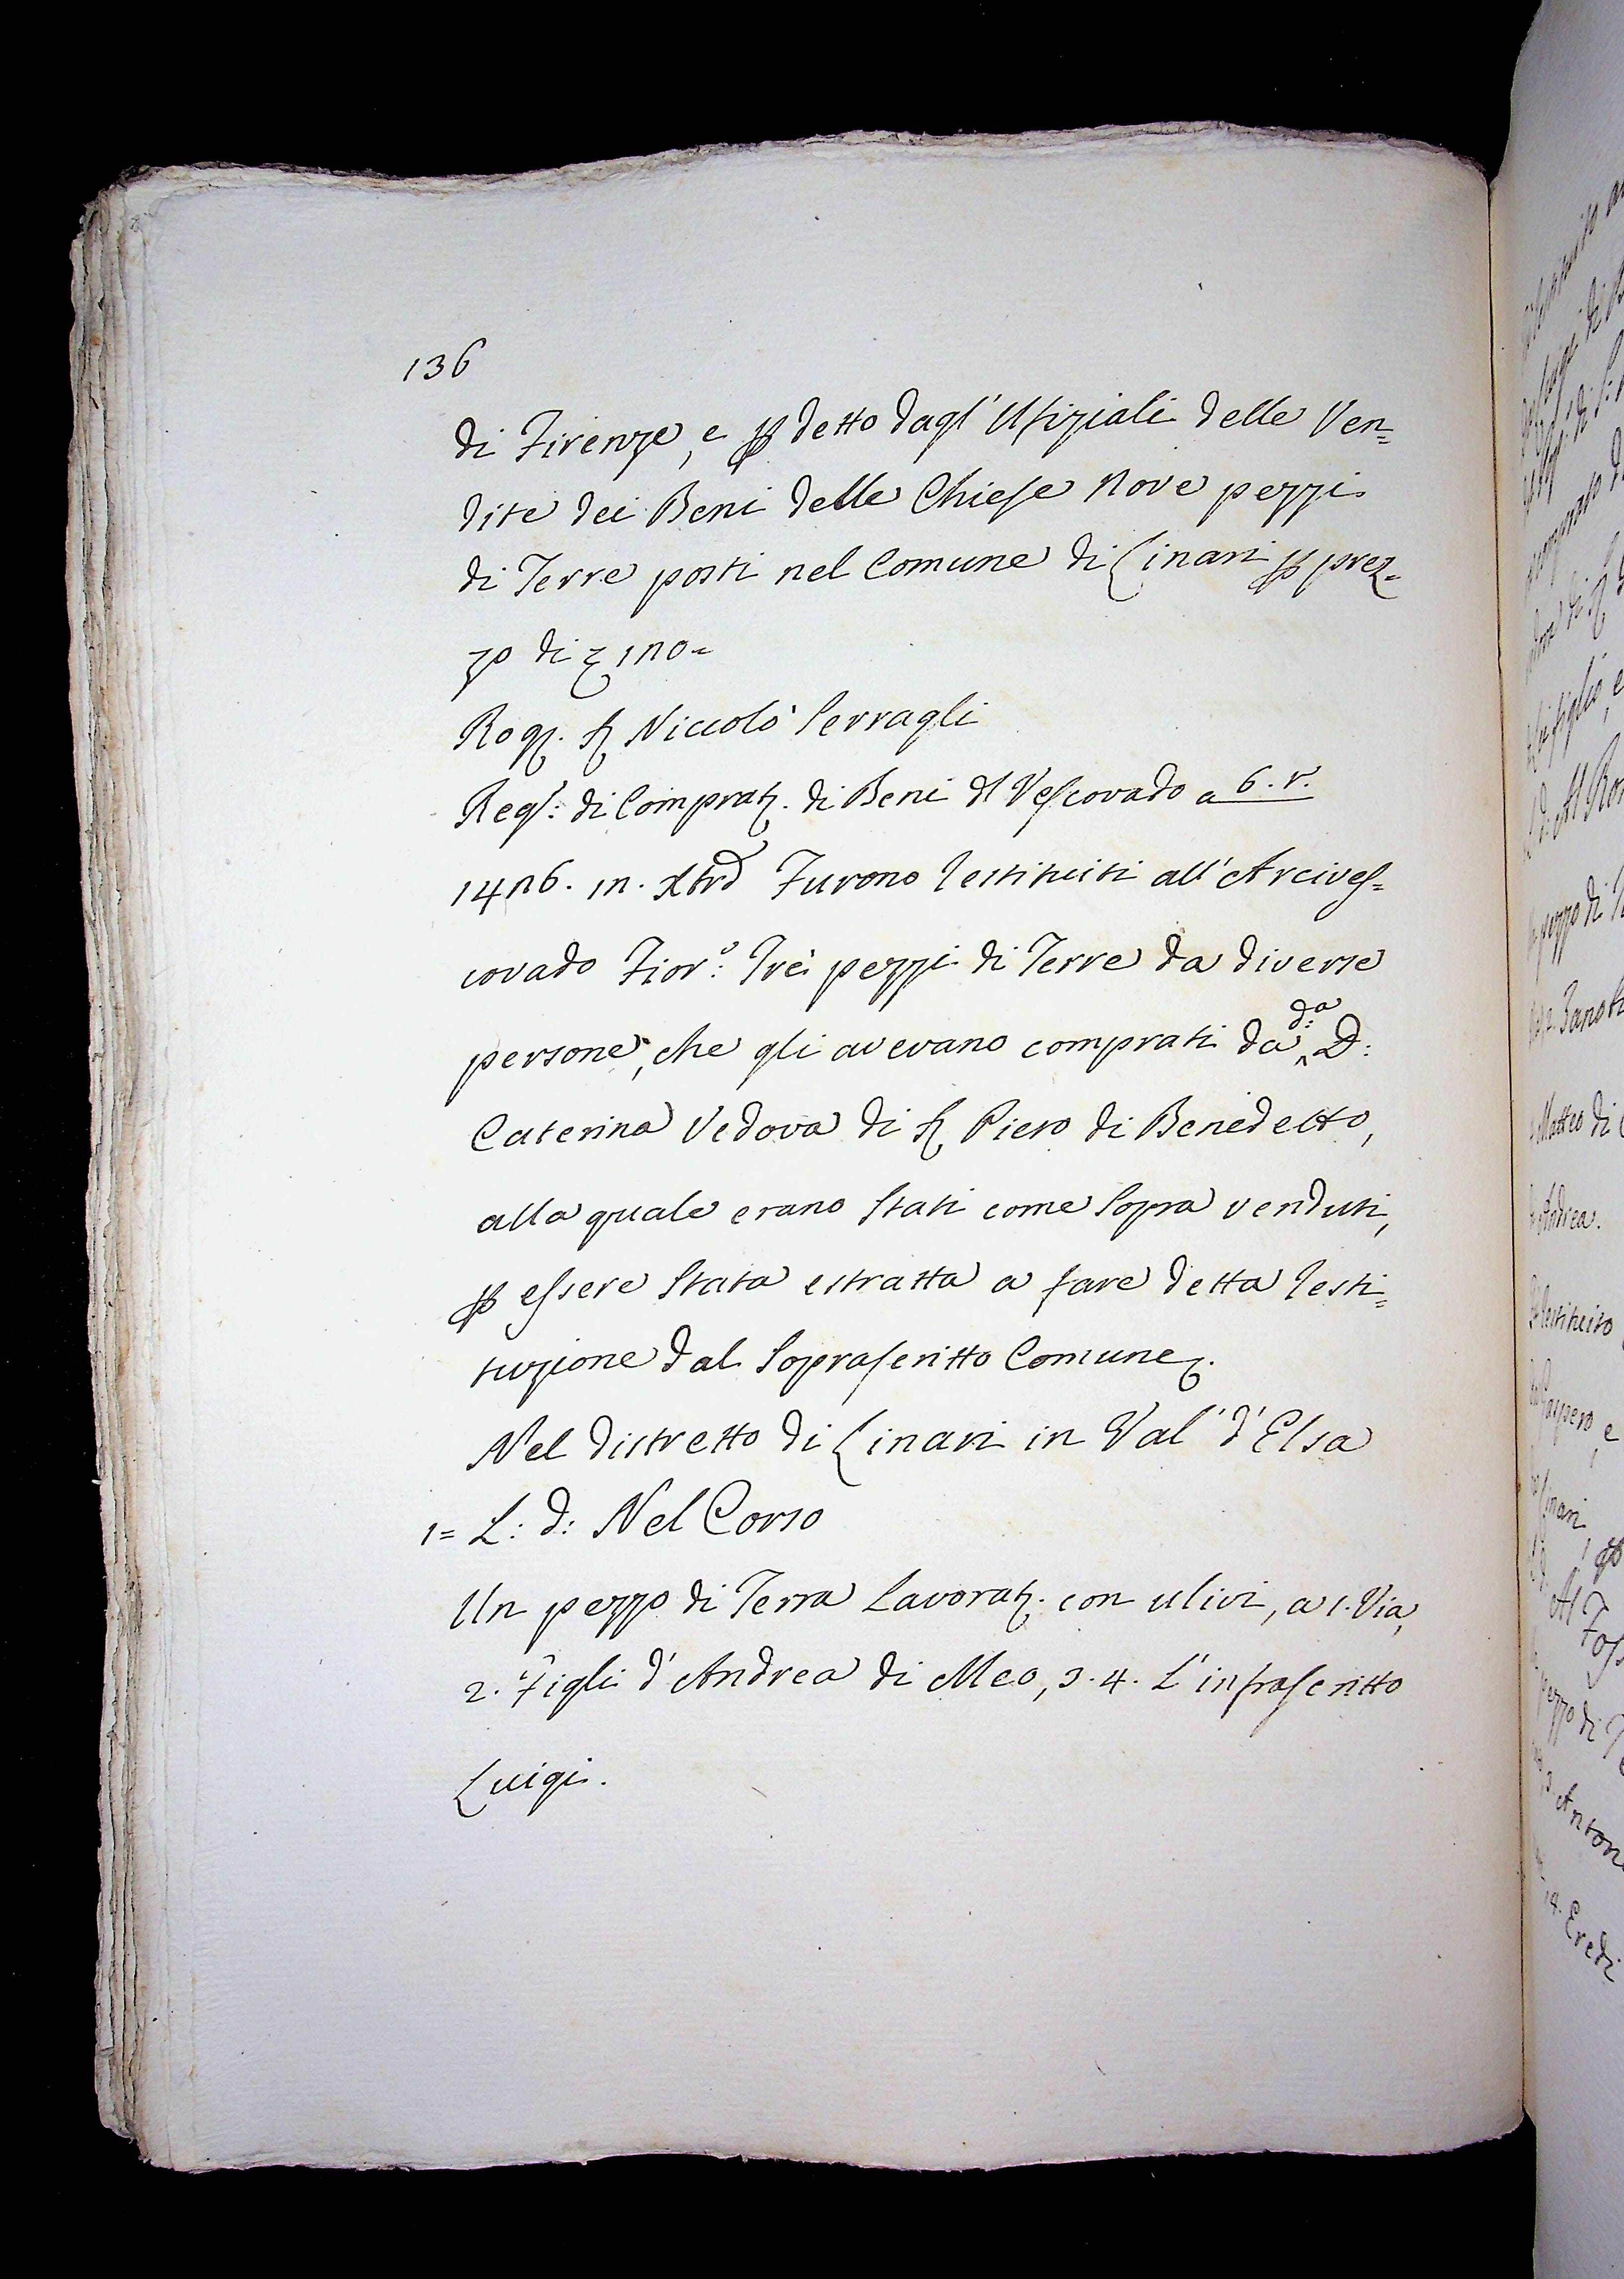 136
di Firenze, e ꝑ detto dagl' Ufiziali delle Ven=
dite dei Beni delle Chiese nove pezzi
di Terre posti nel Comune di Linari ꝑ prez=
zo di
Rog. Sr Niccolò Serragli
Regs: di Comprat. di Beni dl Vescovado a 6. r.
14n6. in. Xbre Furono restituiti all' Arcives=
covado Fior:o Trè pezzi di Terre da diverse
persone, che gli avevano comprati da d:a D:
Caterina Vedova di Sr Piero di Benedetto,
alla quale erano stati come sopra venduti,
ꝑ essere stata estratta a fare detta resti=
tuzione dal Soprascritto Comune.
Nel distretto di Linari in Val' d' Elsa
1= L: d: Nel Corso
Un pezzo di Terra Lavorat. con ulivi, a 1. Via,
2. Figli d' Andrea di Meo, 3. 4. L' infrascritto
Luigi.
Matteo di
Andrea.
Restituito
Gaspero, e
Linari, ꝑ
Al Foss
pezzo di
Eredi